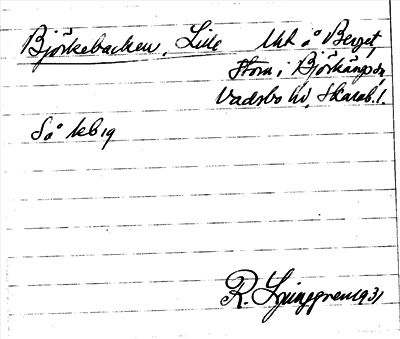 Björkebacken, Lille Utk å Berget,
Horn i Björkängs sn,
Vadsbo hd, Skarab. l.
Så kbig
R. Ljunggren 1931